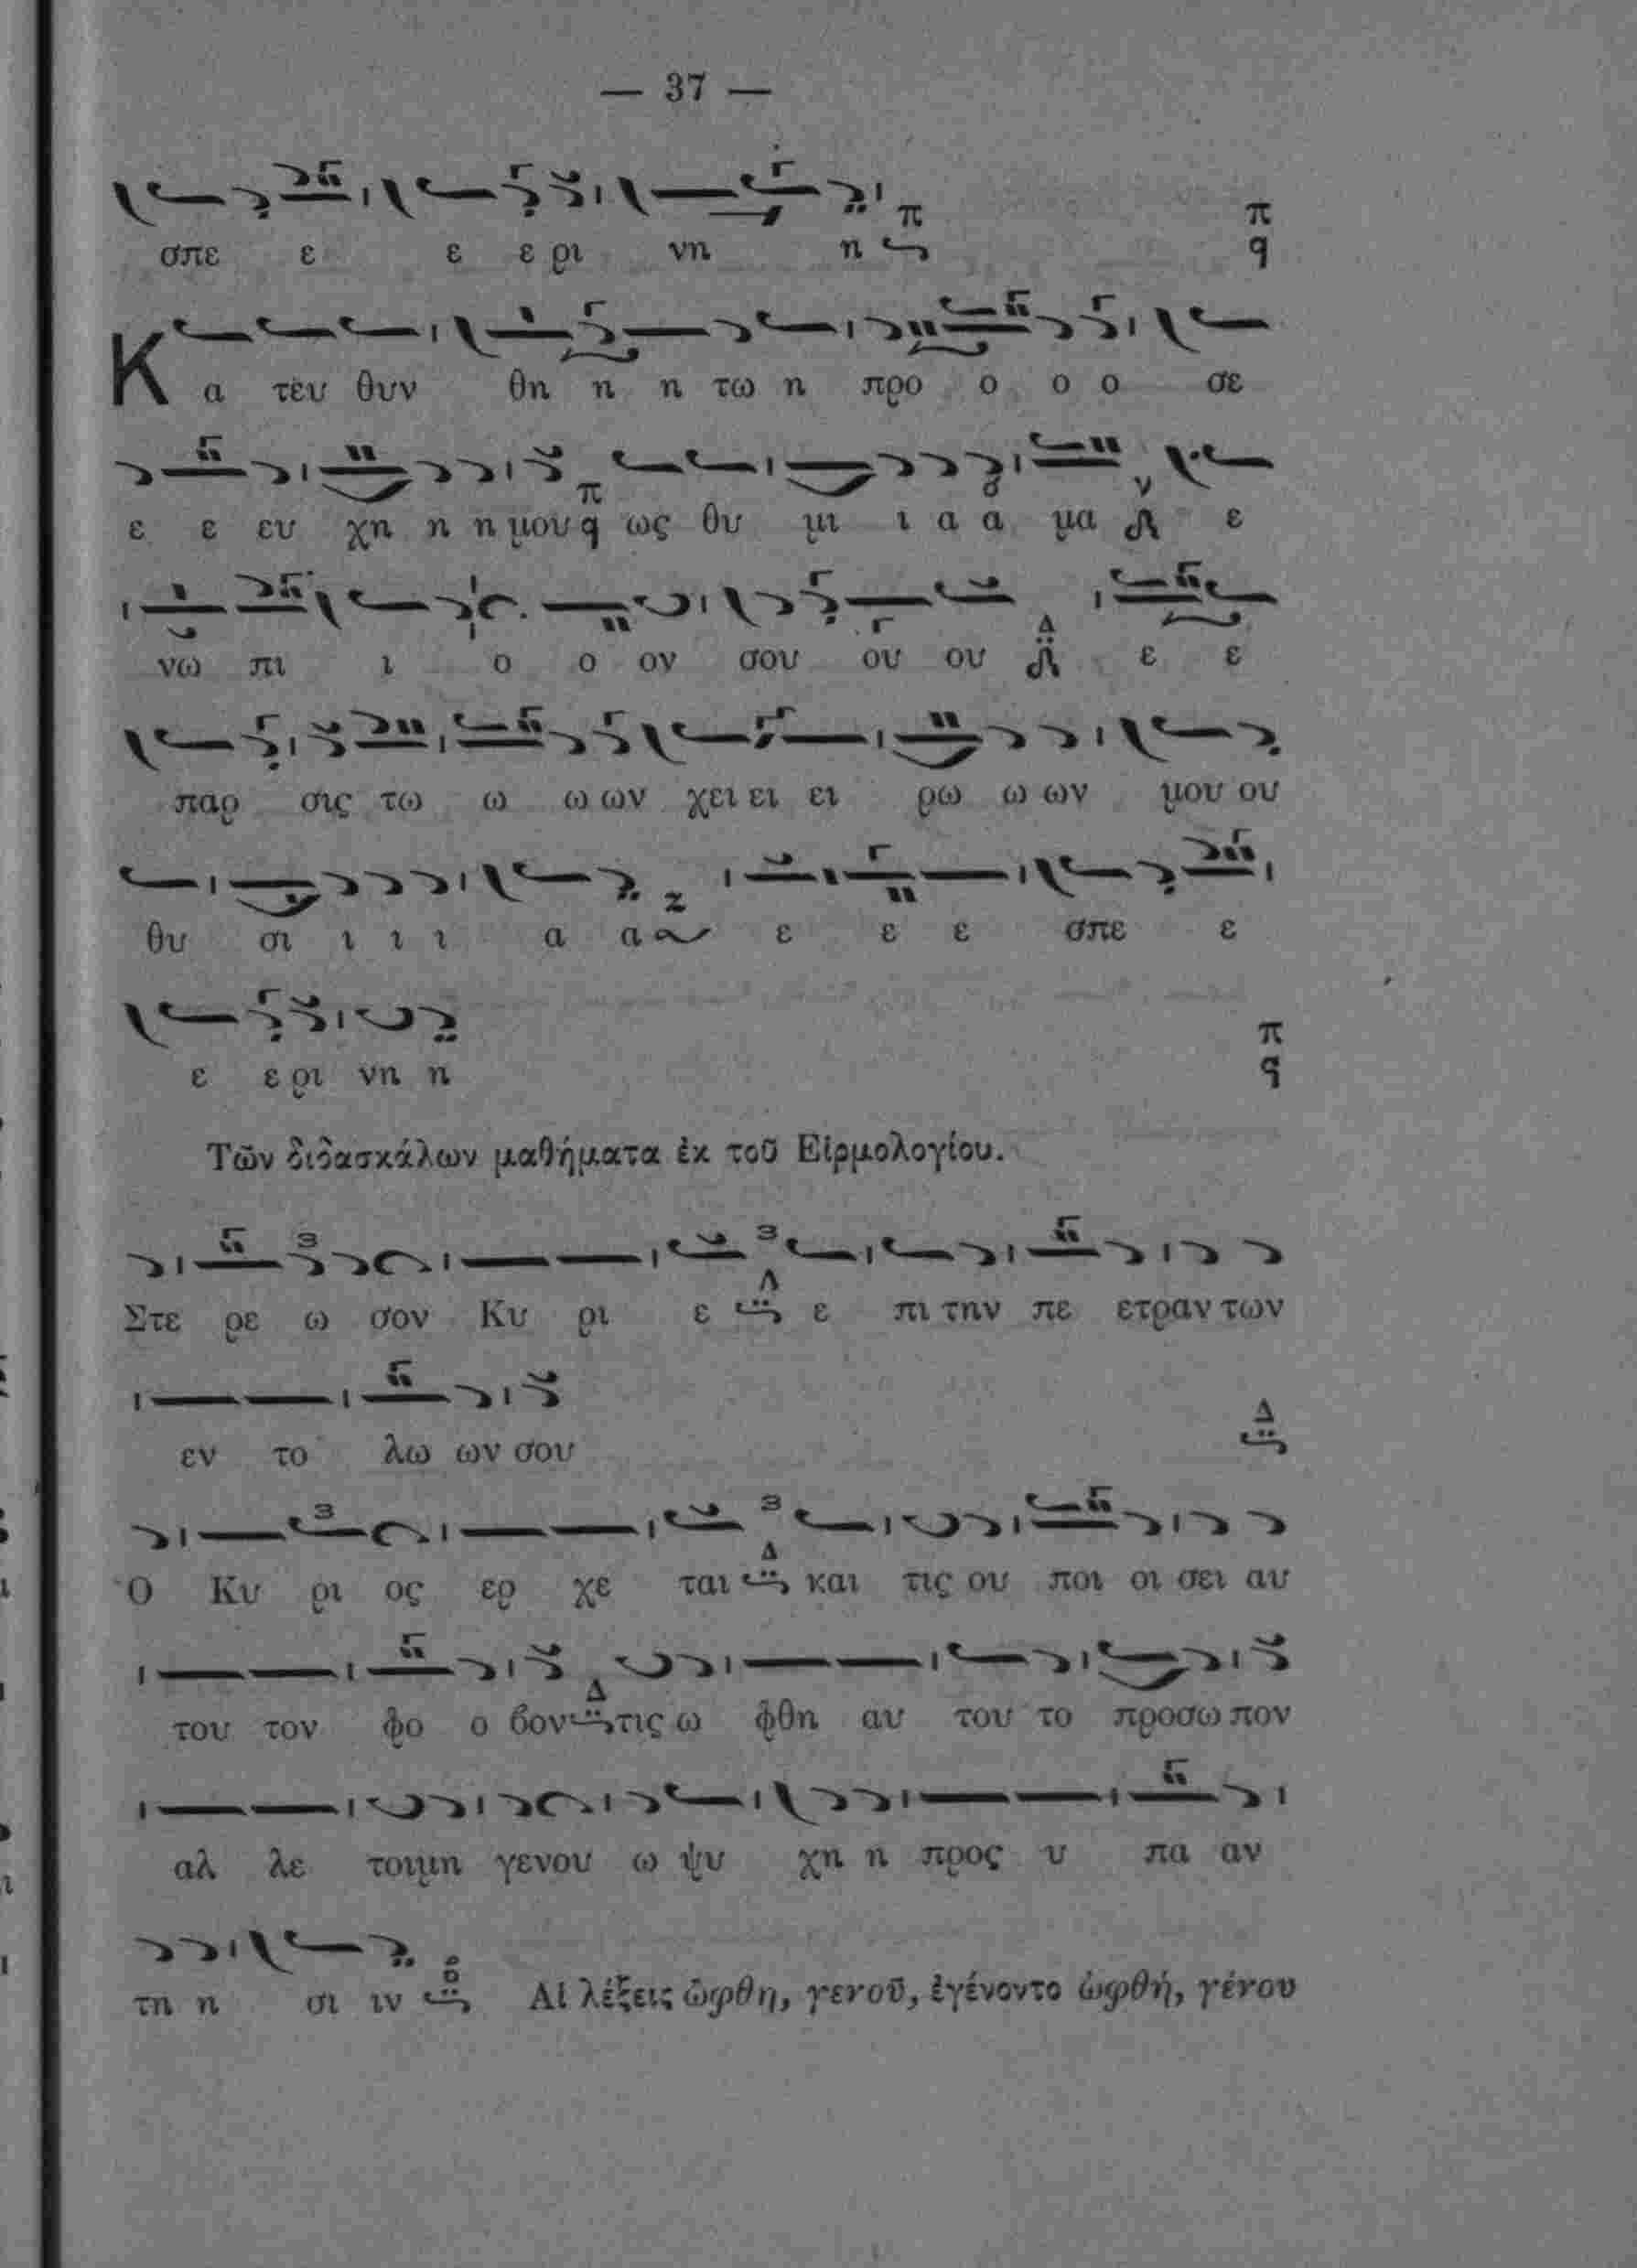 — 37 —
σπε ε ε ε ρι νη η π π
Κ α τευ θυν θη η η τω η προ ο ο ο σε
ε ε ευ χη η η μου π ως θυ μι ι α α μα ν ε
νω πι ι ο ο ον σου ου ου Δ ε ε
παρ σις τω ω ω ων χει ει ει ρω ω ων μου ου
θυ σι ι ι ι α α Ζ ε ε ε σπε ε
ε ε ρι νη η π
Τῶν διδασκάλων μαθήματα ἐκ τοῦ Εἱρμολογίου.
Στε ρε ω σον Κυ ρι ε Δ ε πι την πε ετραν των
εν το λω ων σου Δ
Ο Κυ ρι ος ερ χε ται Δ και τις ου ποι οι σει αυ
του τον φο ο βον Δ τις ω φθη αυ του το προσω πον
αλ λε τοιμη γενου ω ψυ χη η προς υ πα αν
τη η σι ιν Αἱ λέξεις ὤφθη, γενοῦ, ἐγένοντο ὠφθή, γένου